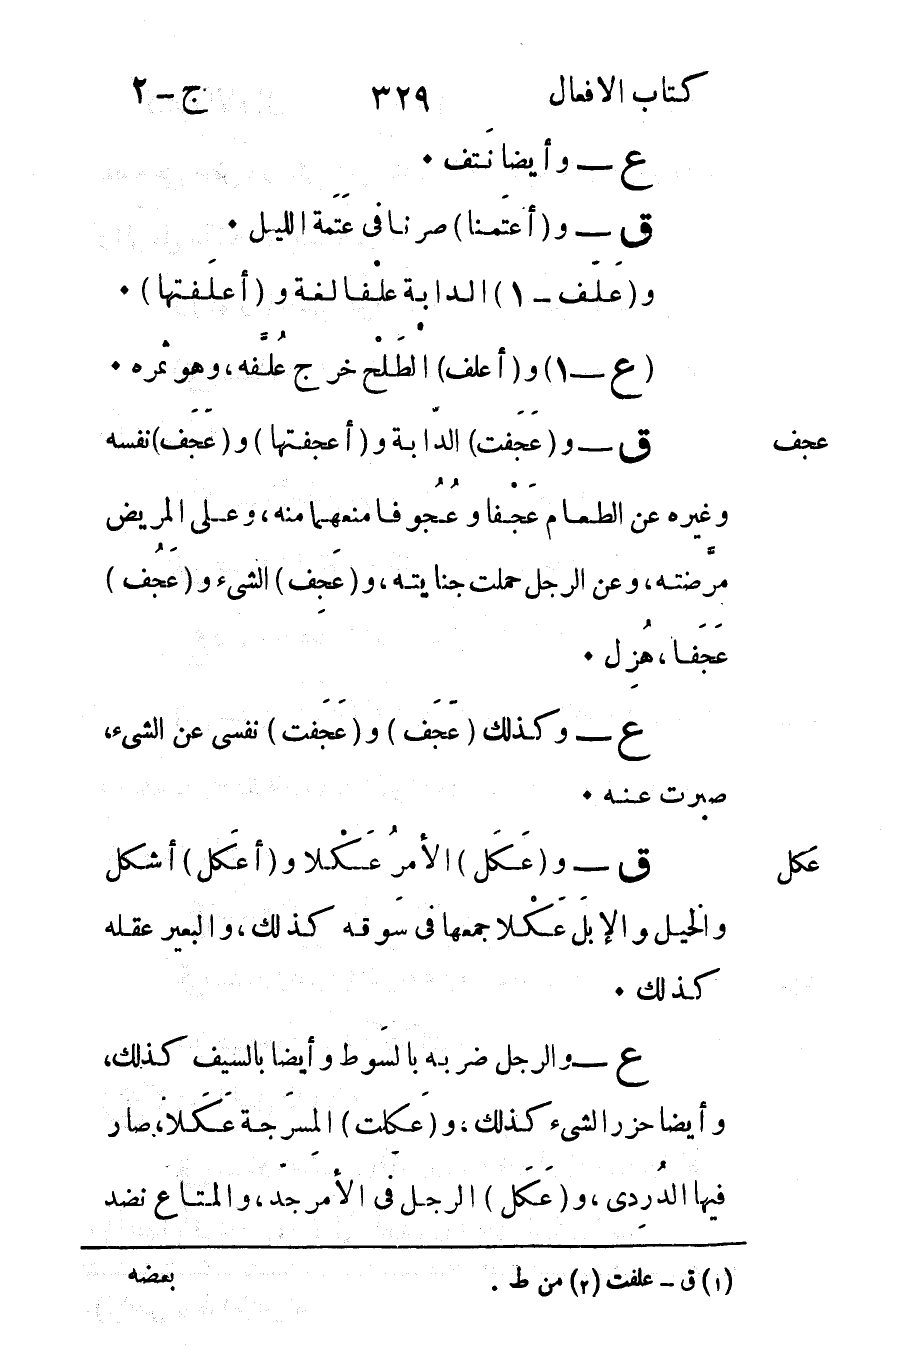 كتاب الافعال ٣٢٩ ج – ٢
ع — وأيضا نَتف .
ق — و (أعتَمنا) صرنا فى عَتَمة الليل .
و (عَلَف – ١) الدابة علْفا لغة و (أعلَفتها) .
(ع — ١) و (أعلف) الطَلْح خرج عُلَّفه، وهو ثمره .
عجف ق — و (عَجَفت) الدّابة و (أعجفتها) و (عَجَف) نفسه
وغيره عن الطعام عَجْفا وعُجُوفا منعهما منه، وعلى المريض
مرّضته، وعن الرجل حملت جنايته، و (عَجِف) الشىء و (عَجُف)
عَجَفا، هُزِل .
ع — وكذلك (عَجّف) و (عَجَفت) نفسى عن الشىء،
صبرت عنه .
عكل ق — و (عَكَل) الأمرُ عَكْلا و (أعكَل) أشكل
والخيل والإبل عَكْلا جمعها فى سَوقه كذلك، والبعير عقله
كذلك .
ع — والرجل ضربه بالسَوط وأيضا بالسيف كذلك،
وأيضا حزر الشىء كذلك، و (عَكِلت) المسرَجة عَكَلا، صار
فيها الدُردِى، و (عَكَل) الرجل فى الأمر جَدّ، والمتاع نضد
(١) ق – علفت (٢) من ط . بعضه